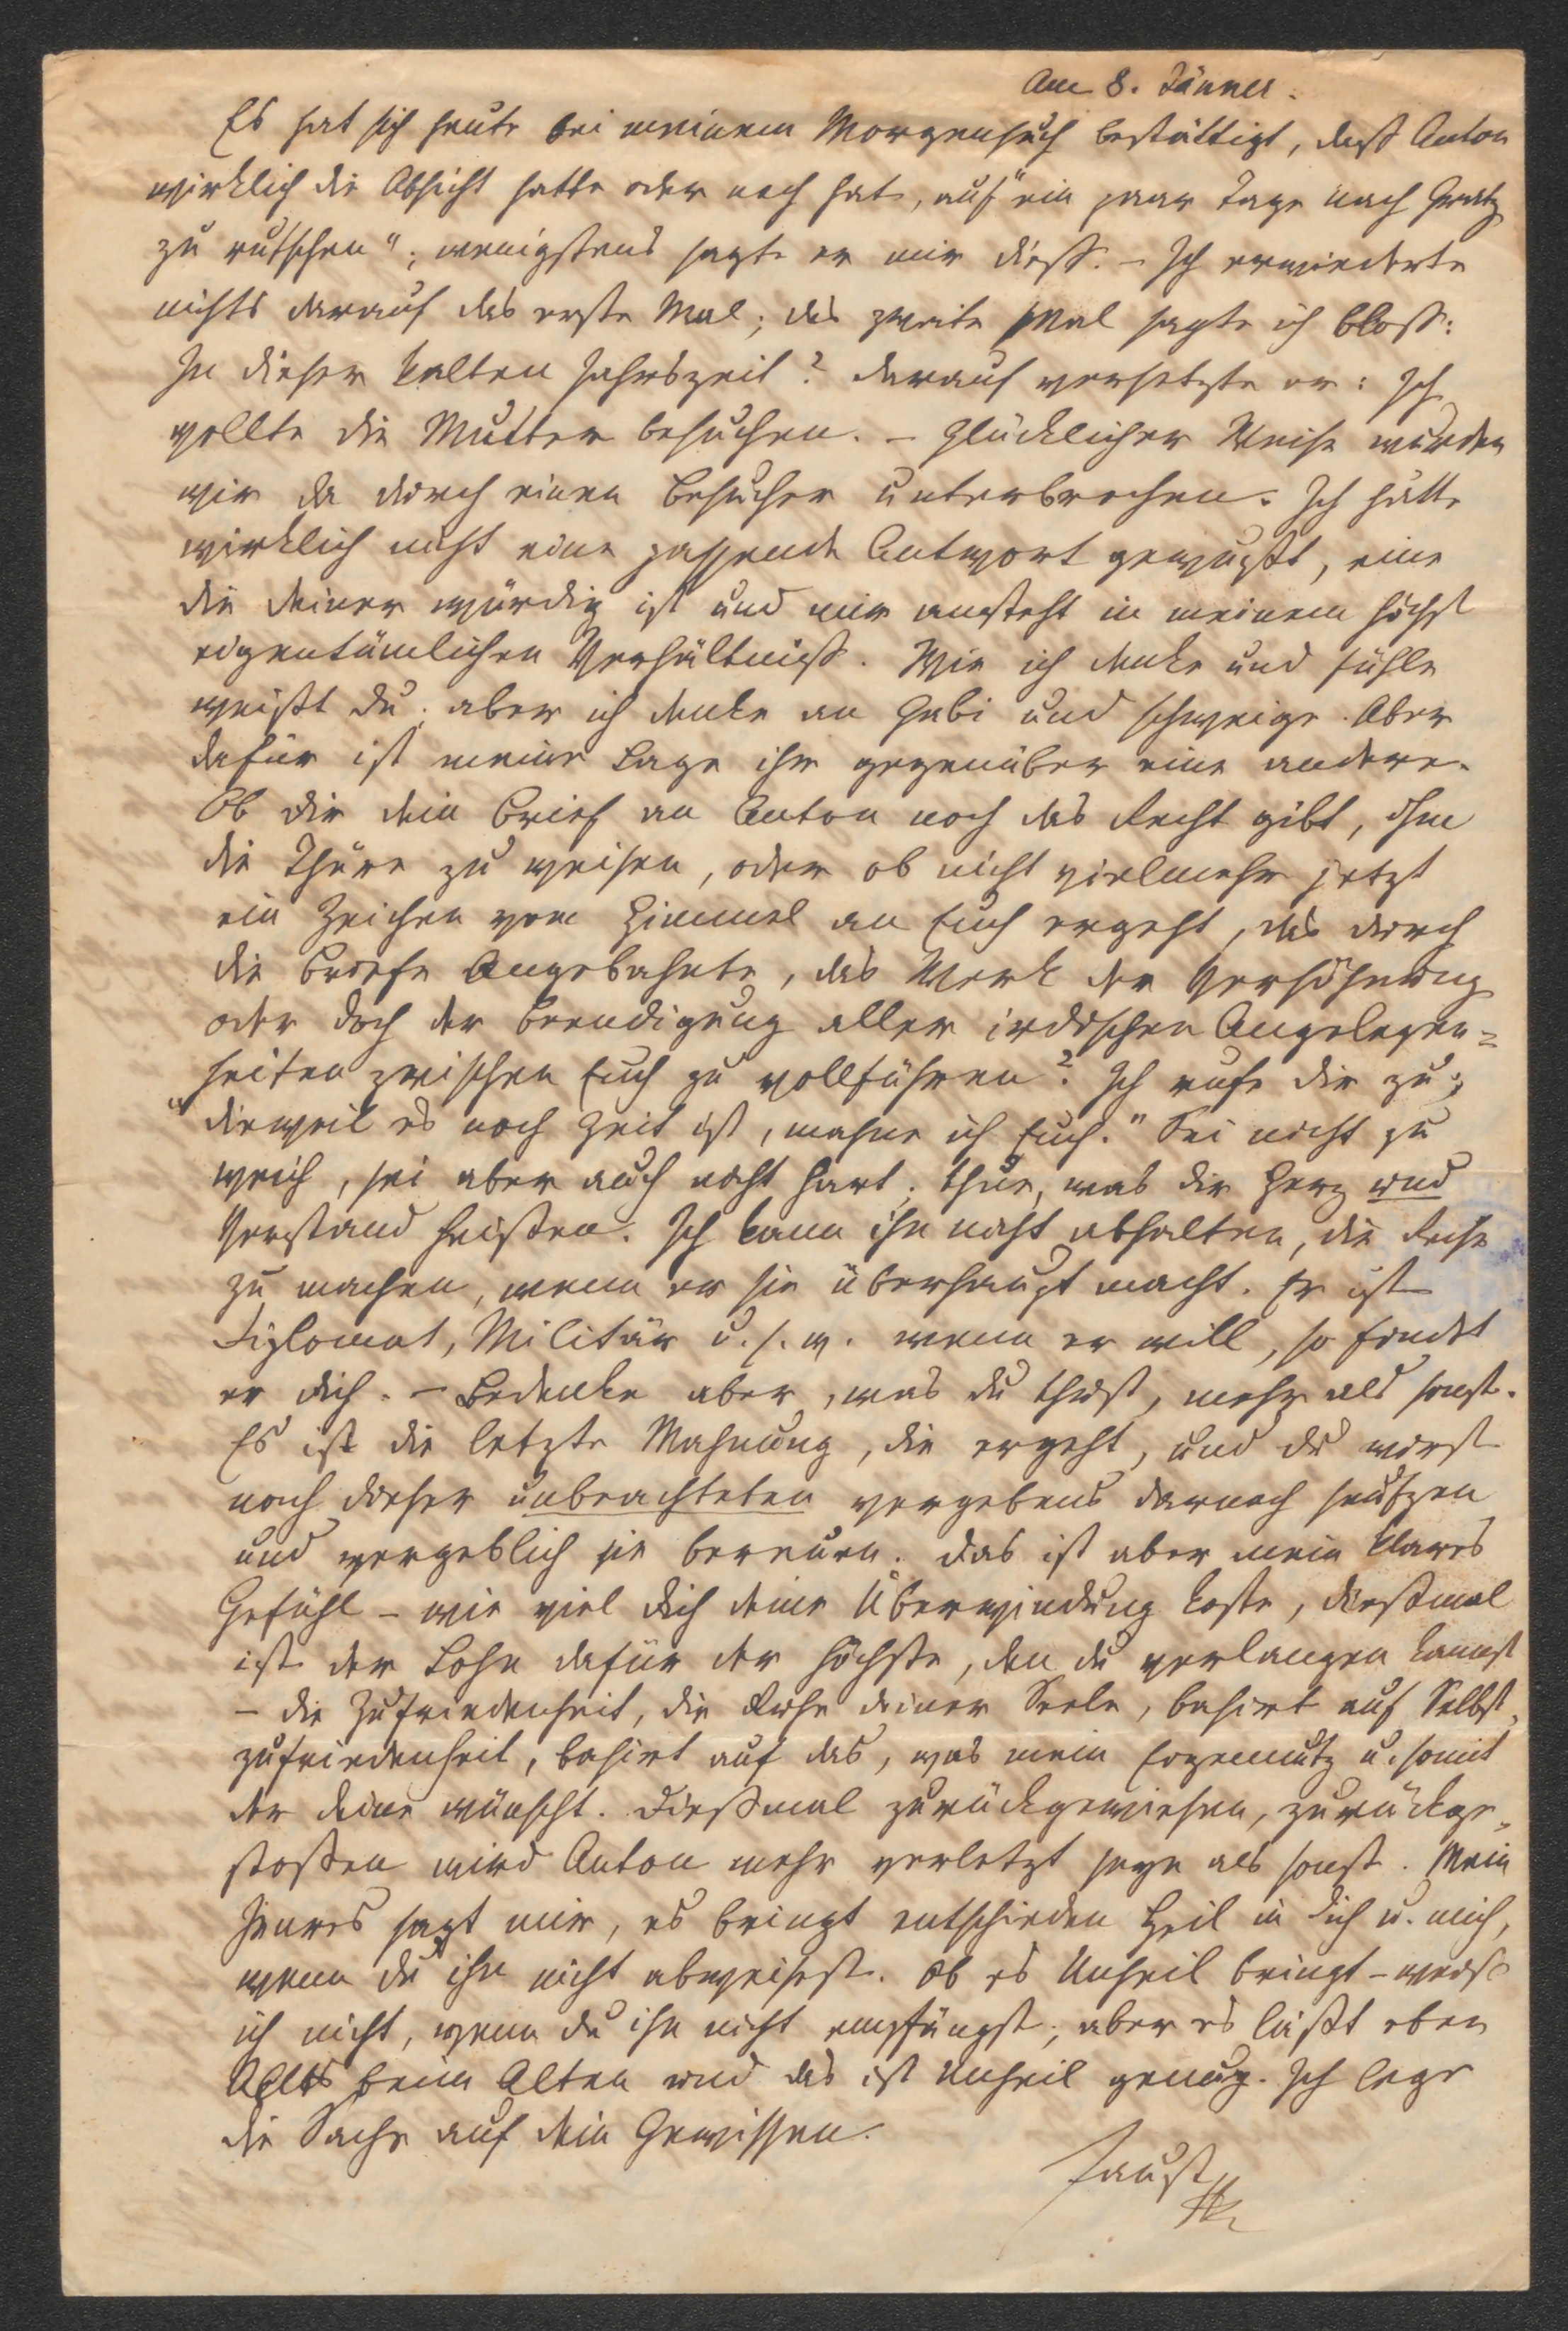 Am 8. Jänner.
Es hat sich heute bei meinem Morgensuch bestättigt, daß Anton
wirklich die Absicht hatte oder noch hat, auf "ein paar Tage nach Gratz
zu rutschen"; wenigstens sagte er mir dieß. – Ich erwiederte
nichts darauf das erste Mal; das zweite Mal sagte ich bloß:
In dieser kalten Jahrszeit? darauf versetzte er: Ich
wollte die Mutter besuchen. – Glücklicher Weise wurden
wir da durch einen Besucher unterbrochen. Ich hätte
wirklich nicht eine passende Antwort gewußt, eine
die deiner würdig ist und mir ansteht in meinem höchst
eigentümlichen Verhältniß. Wie ich denke und fühle
weißt du; aber ich denke an Gabi und schweige. Aber
dafür ist meine Lage ihm gegenüber eine andere.
Ob dir dein Brief an Anton noch das Recht gibt, ihm
die Thüre zu weisen, oder ob nicht vielmehr jetzt
ein Zeichen vom Himmel an Euch ergeht, das durch
die Briefe Angebahnte, das Werk der Versöhnung
oder doch der Beendigung aller irdischen Angelegen=
heiten zwischen Euch zu vollführen? Ich rufe dir zu;
"dieweil es noch Zeit ist, mahne ich Euch." Sei nicht zu
weich, sei aber auch nicht hart; thue, was dir Herz und
Verstand heißen. Ich kann ihn nicht abhalten, die Reise
zu machen, wenn er sie überhaupt macht. Er ist
Diplomat, Militär u. s. w. wenn er will, so findet
er dich. – Bedenke aber, was du thust, mehr als sonst.
Es ist die letzte Mahnung, die ergeht, und du wirst
nach dieser unbeachteten vergebens darnach seufzen
und vergeblich sie bereuen. das ist aber mein klares
Gefühl – wie viel dich deine Überwindung koste, dießmal
ist der Lohn dafür der höchste, den du verlangen kannst
– die Zufriedenheit, die Ruhe deiner Seele, basirt auf Selbst=
zufriedenheit, basirt auf das, was mein Eigennutz u. somit
der deine wünscht. Dießmal zurückgewiesen, zurückge=
stoßen wird Anton mehr verletzt seyn als sonst. Mein
Inneres sagt mir, es bringt entschieden Heil in dich u. mich,
wenn du ihn nicht abweisest. Ob es Unheil bringt – weiß
ich nicht, wenn du ihn nicht empfängst; aber es läßt eben
Alles beim Alten und das ist Unheil genug. Ich lege
die Sache auf dein Gewissen.
Faust